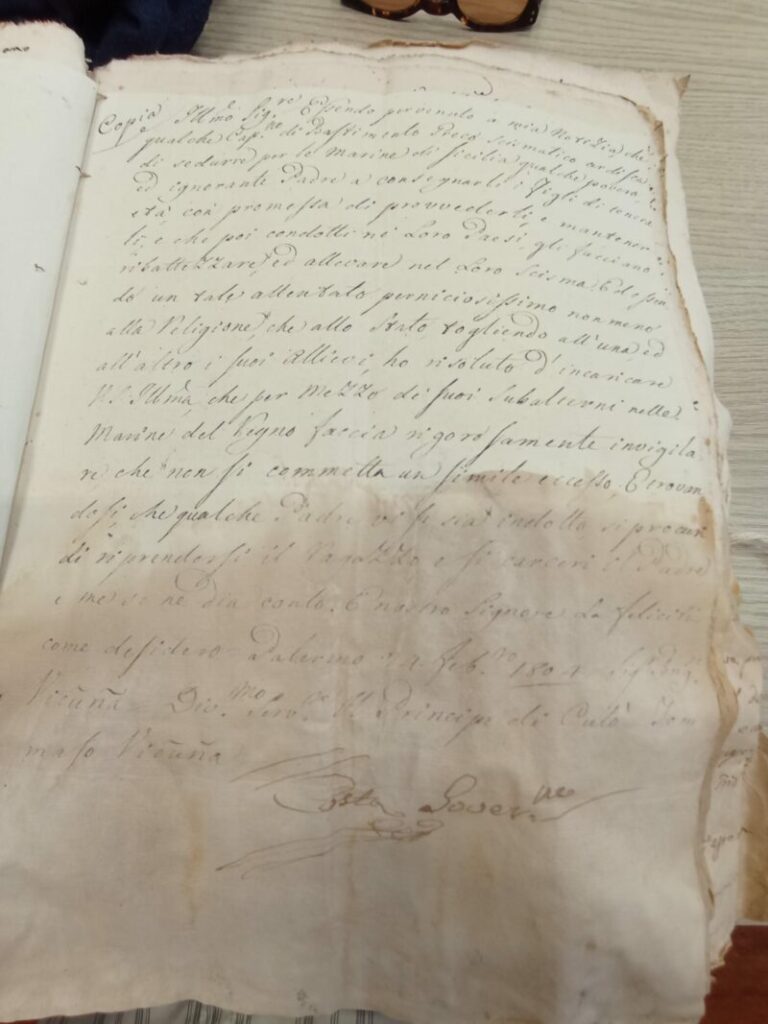 Copia Ill.mo Sig.re Essendo pervenuto a mia Notizia, che
qualche Cap.no di Bastimento Greco Scismatico ardisca
di sedurre per le Marine di Sicilia qualche povero,
ed ignorante Padre a consegnarli i Figli di tenera
età con promessa di provvederli, e mantener
li, e che poi condotti ne Loro Paesi, gli facciano
ribattezzare, ed allevare nel Loro Scisma. Ed essen
do un tale attentato perniciosissimo non meno
alla Religione, che allo Stato, togliendo all'una ed
all'altro i suoi Allievi, ho risoluto d'incaricare
V.S. Ill.ma, che per mezzo di suoi Subalterni nelle
Marine del Regno faccia rigorosamente invigila
re che non si commetta un simile eccesso, E trovan
dosi, che qualche Padre vi si sia indotto si procuri
di riprendersi il Ragazzo e si carceri il Padre
e me se ne dia conto. E nostro Signore La feliciti
come desidero. Palermo Feb.ro 1804
Vicuña Div.mo Serv.e Il Principe di Cutò Tom
maso Vicuña
Costa Gover.re